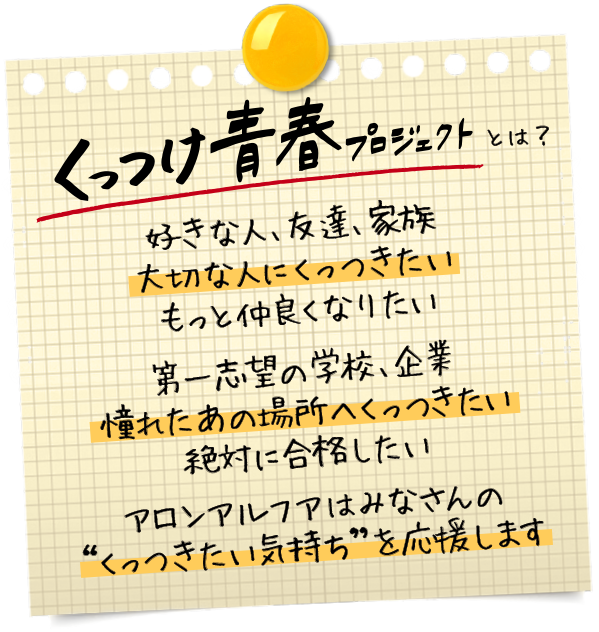 くっつけ青春プロジェクトとは？
好きな人、友達、家族
大切な人にくっつきたい
もっと仲良くなりたい
第一志望の学校、企業
憧れたあの場所へくっつきたい
絶対に合格したい
アロンアルフアはみなさんの
“くっつきたい気持ち”を応援します